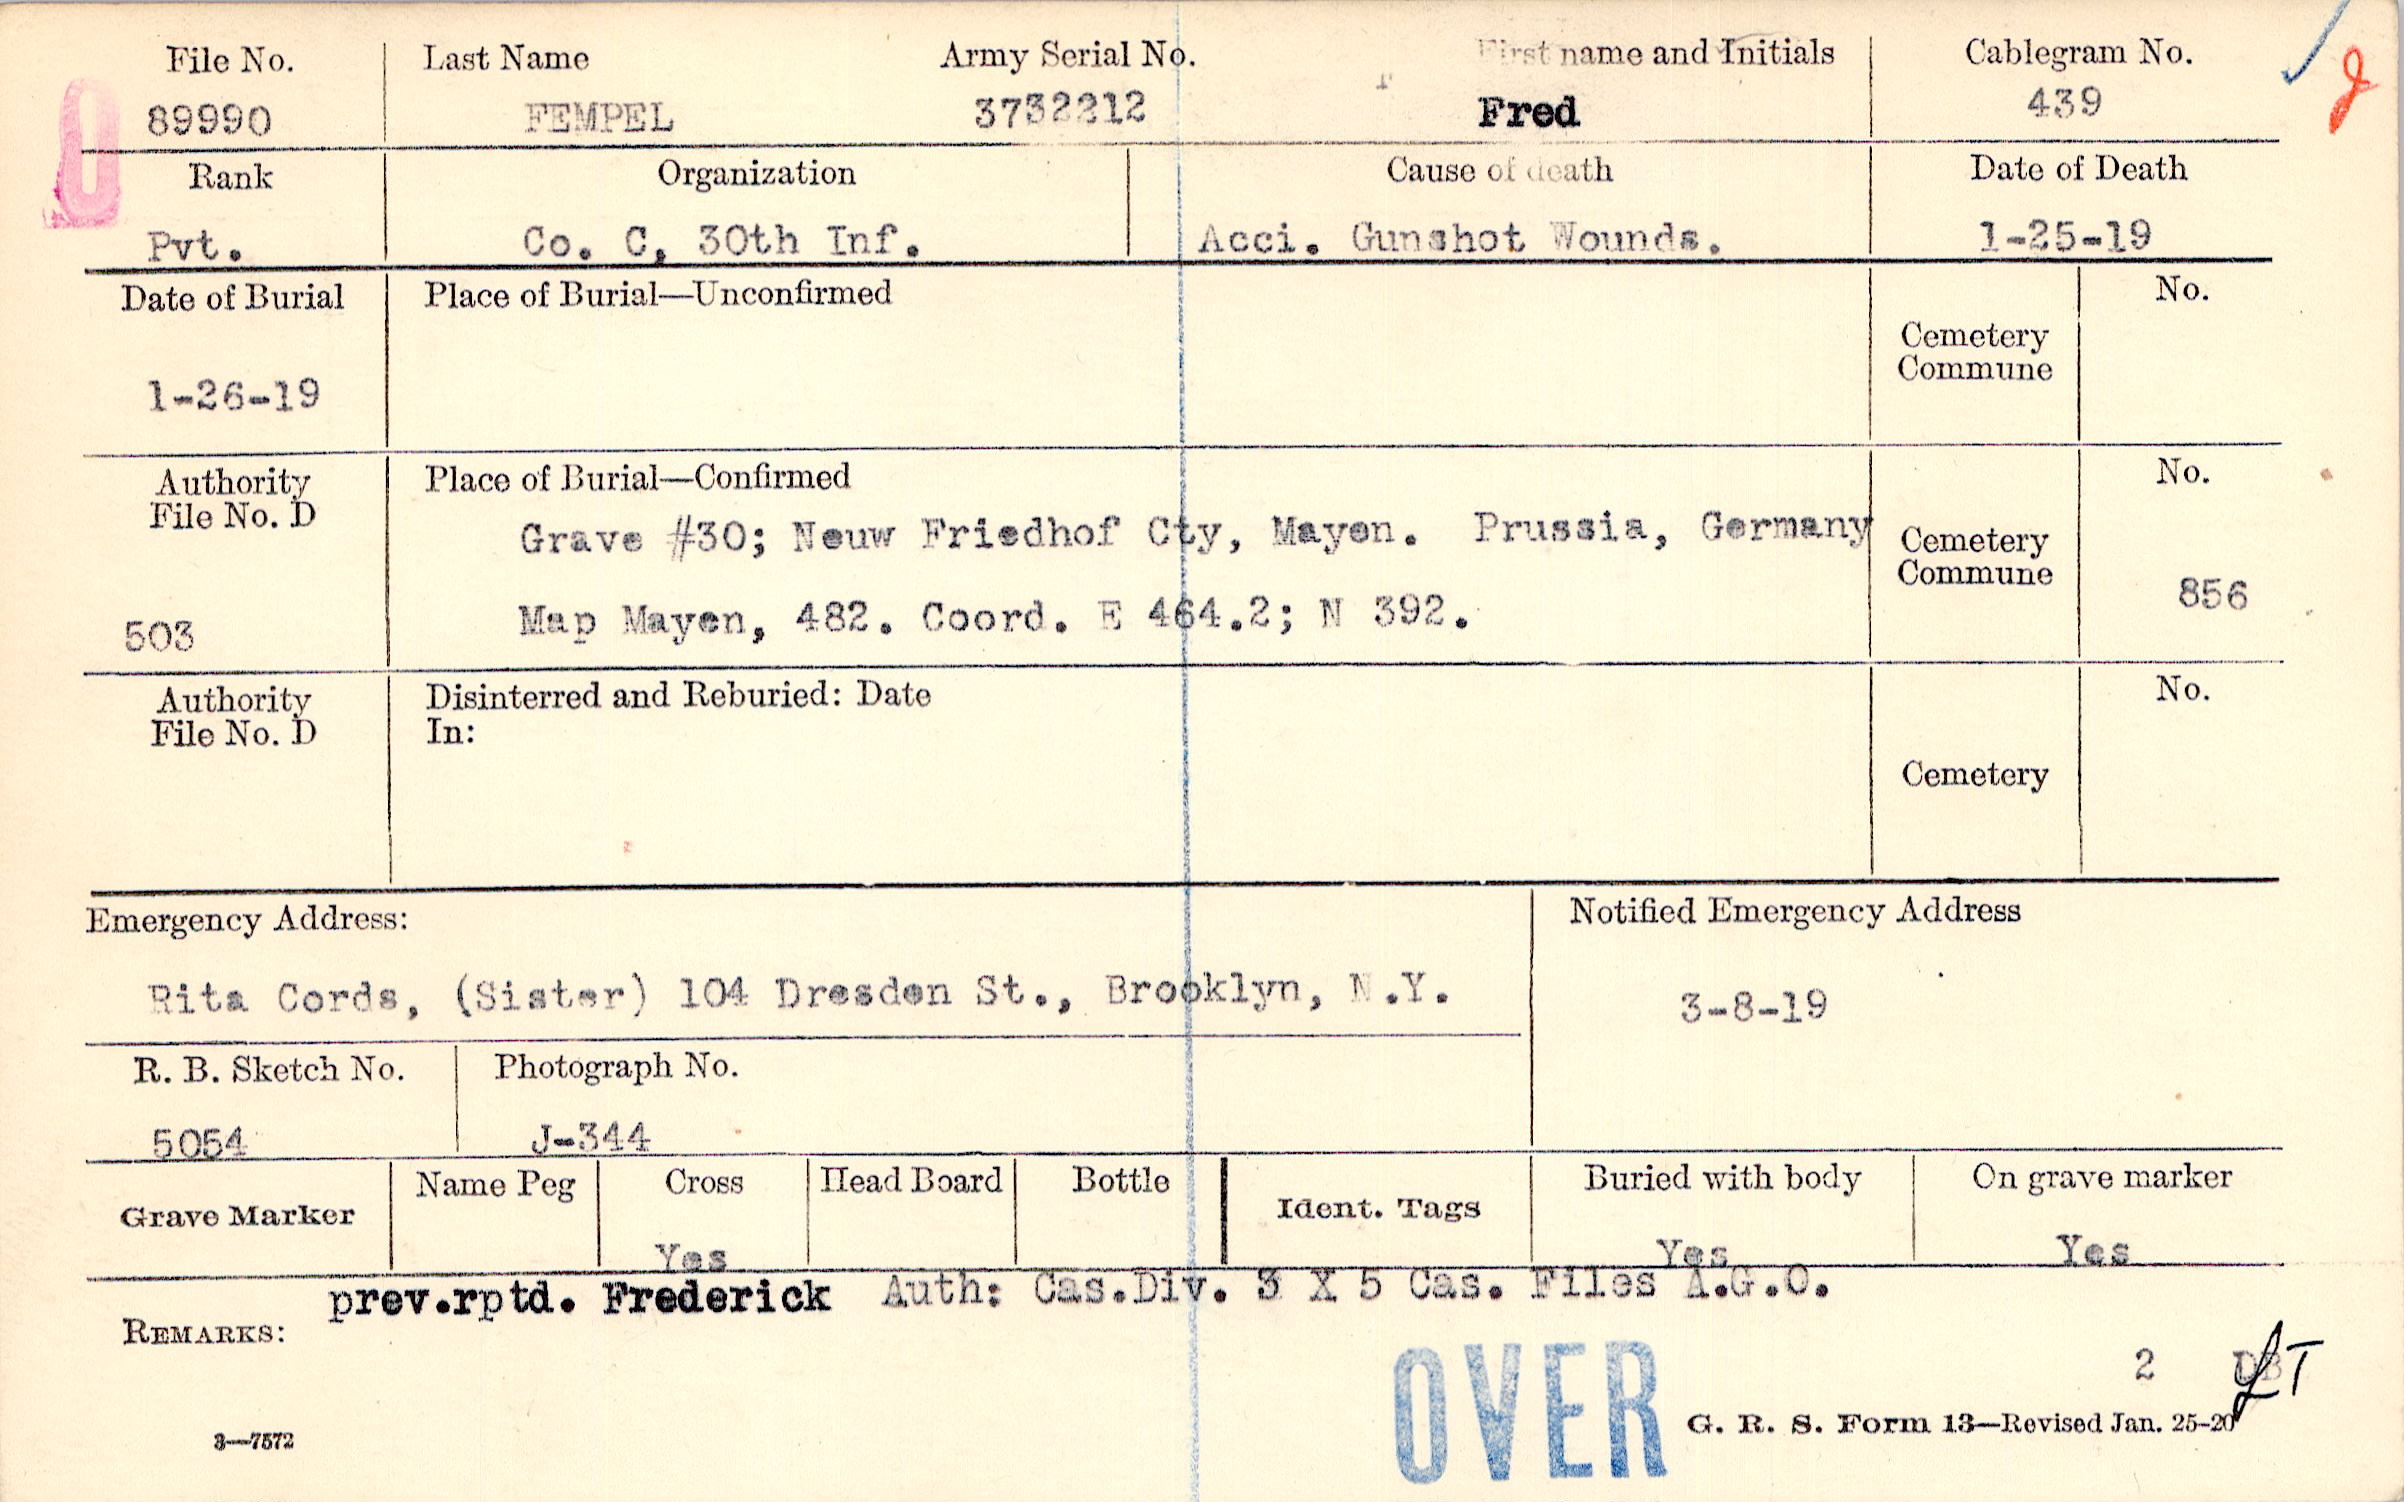 File No. Last Name Army Serial No. First name and Initials Cablegram No.
89990 FEMPEL 3732212 Fred 439
Rank Organization Cause of death Date of Death
Pvt. Co. C, 30th Inf. Acci. Gunshot Wounds. 1-25-19
Date of Burial Place of Burial—Unconfirmed No.
Cemetery
Commune
1-26-19
Authority Place of Burial—Confirmed No.
File No. D
Grave #30; Neuw Friedhof Cty, Mayen. Prussia, Germany Cemetery
Commune
856
Map Mayen, 482. Coord. E 464.2; N 392.
503
Authority Disinterred and Reburied: Date No.
File No. D In:
Cemetery
Emergency Address: Notified Emergency Address
Rita Cords, (Sister) 104 Dresden St., Brooklyn, N.Y. 3-8-19
R. B. Sketch No. Photograph No.
5054 J-344
Grave Marker Name Peg Cross Head Board Bottle Ident. Tags Buried with body On grave marker
Yes Yes Yes
prev.rptd. Frederick Auth: Cas.Div. 3 X 5 Cas. Files A.G.O.
REMARKS:
2 LT
OVER
G. R. S. Form 13—Revised Jan. 25-20
3—7572